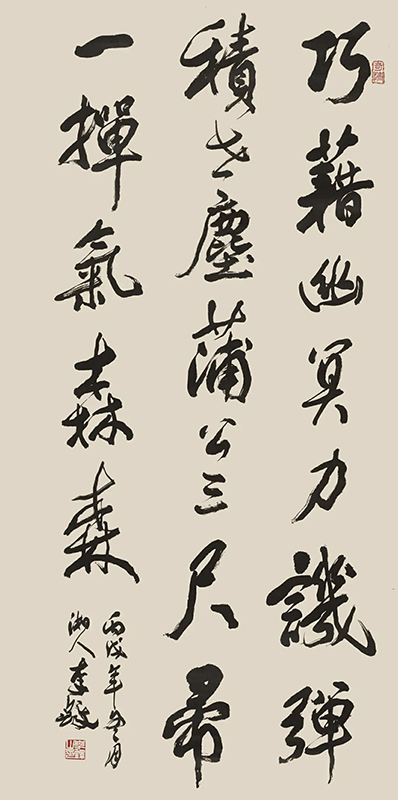 巧藉幽冥力譏彈
積世塵蒲公三尺帚
一撣氣森森
丙戌年月
湘人李